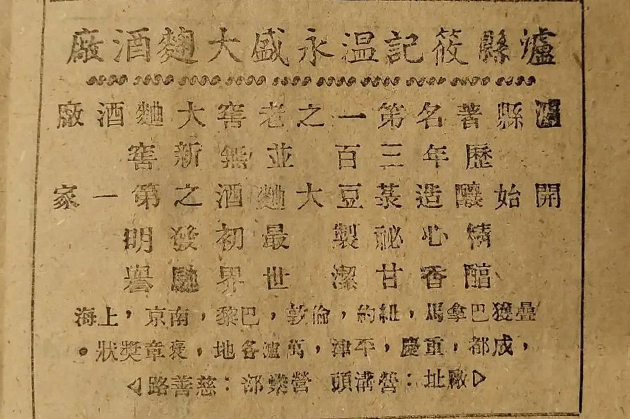 瀘縣筱記溫永盛大麴酒廠
瀘縣著名第一之老窖大麯酒廠
歷年三百並無新窖
開始釀造菉豆大麯酒之第一家
精心秘製最初發明
醕香甘潔世界馳譽
疊獲巴拿馬，紐約，倫敦，巴黎，南京，上海
，成都，重慶，平津，萬瀘各地褒章獎狀。
▷廠址：營溝頭 營業部：慈善路◁